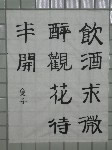 飲酒求微
醉觀花待
半開